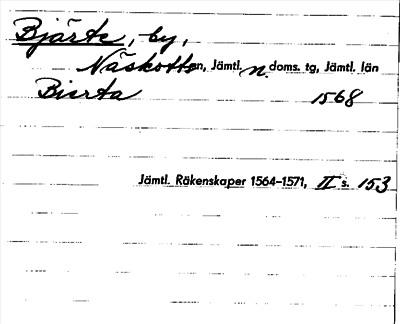 Bjärte, by,
Näskotts sn, Jämtl. n. doms. tg, Jämtl. län
Bierta 1568
Jämtl. Räkenskaper 1564–1571, II s. 153